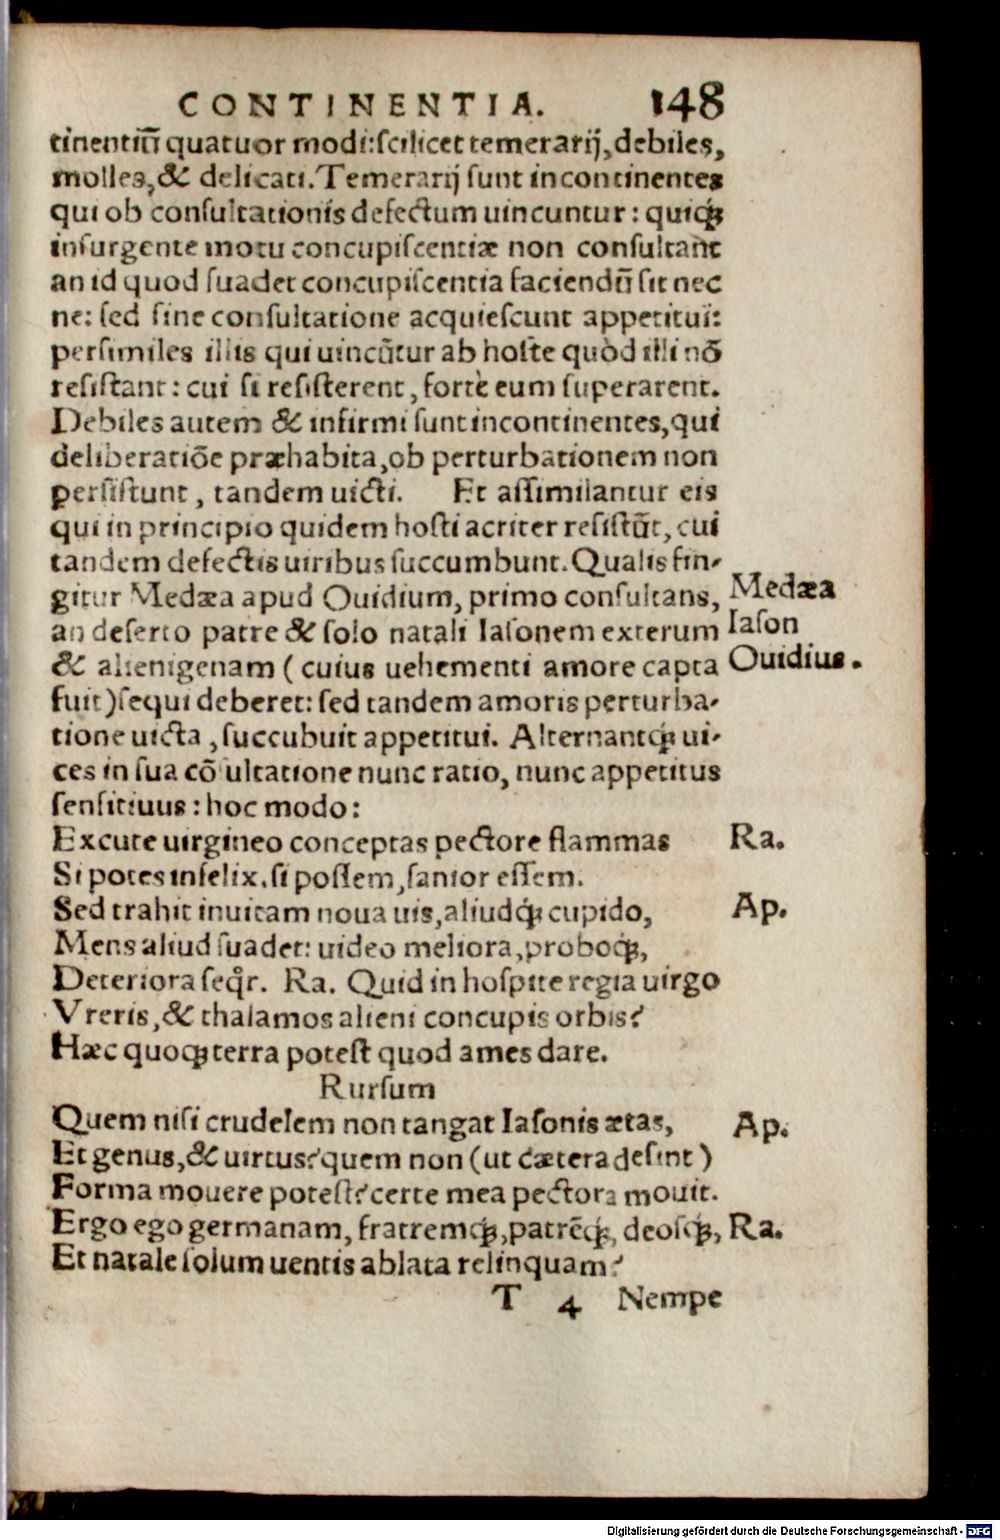 CONTINENTIA. 148
tinentiū quatuor modi:scilicet temerarij,debiles,
molles,& delicati.Temerarij sunt incontinentes
qui ob consultationis defectum uincuntur: quiq́;
insurgente motu concupiscentiæ non consultant
an id quod suadet concupiscentia faciendū sit nec
ne: sed sine consultatione acquiescunt appetitui:
persimiles illis qui uincūtur ab hoste quòd illi nō
resistant: cui si resisterent, fortè eum superarent.
Debiles autem & infirmi sunt incontinentes,qui
deliberatiōe præhabita,ob perturbationem non
persistunt, tandem uicti. Et assimilantur eis
qui in principio quidem hosti acriter resistūt, cui
tandem defectis uiribus succumbunt.Qualis fin-
gitur Medæa apud Ouidium, primo consultans, Medæa
an deserto patre & solo natali Iasonem exterum Iason
& alienigenam (cuius uehementi amore capta Ouidius.
fuit)sequi deberet: sed tandem amoris perturba-
tione uicta, succubuit appetitui. Alternantq́; ui-
ces in sua cō ultatione nunc ratio, nunc appetitus
sensitiuus: hoc modo:
Excute uirgineo conceptas pectore flammas Ra.
Si potes infelix.si possem,sanior essem.
Sed trahit inuitam noua uis,aliudq́; cupido, Ap.
Mens aliud suadet: uideo meliora,proboq́;,
Deteriora seqr̃. Ra. Quid in hospite regia uirgo
Vreris,& thalamos alieni concupis orbis?
Hæc quoq; terra potest quod ames dare.
Rursum
Quem nisi crudelem non tangat Iasonis ætas, Ap.
Et genus,& uirtus?quem non (ut cætera desint)
Forma mouere potest?certe mea pectora mouit.
Ergo ego germanam, fratremq́;,patrēq́;, deosq́;, Ra.
Et natale solum uentis ablata relinquam?
T 4 Nempe
Digitalisierung gefördert durch die Deutsche Forschungsgemeinschaft - DFG